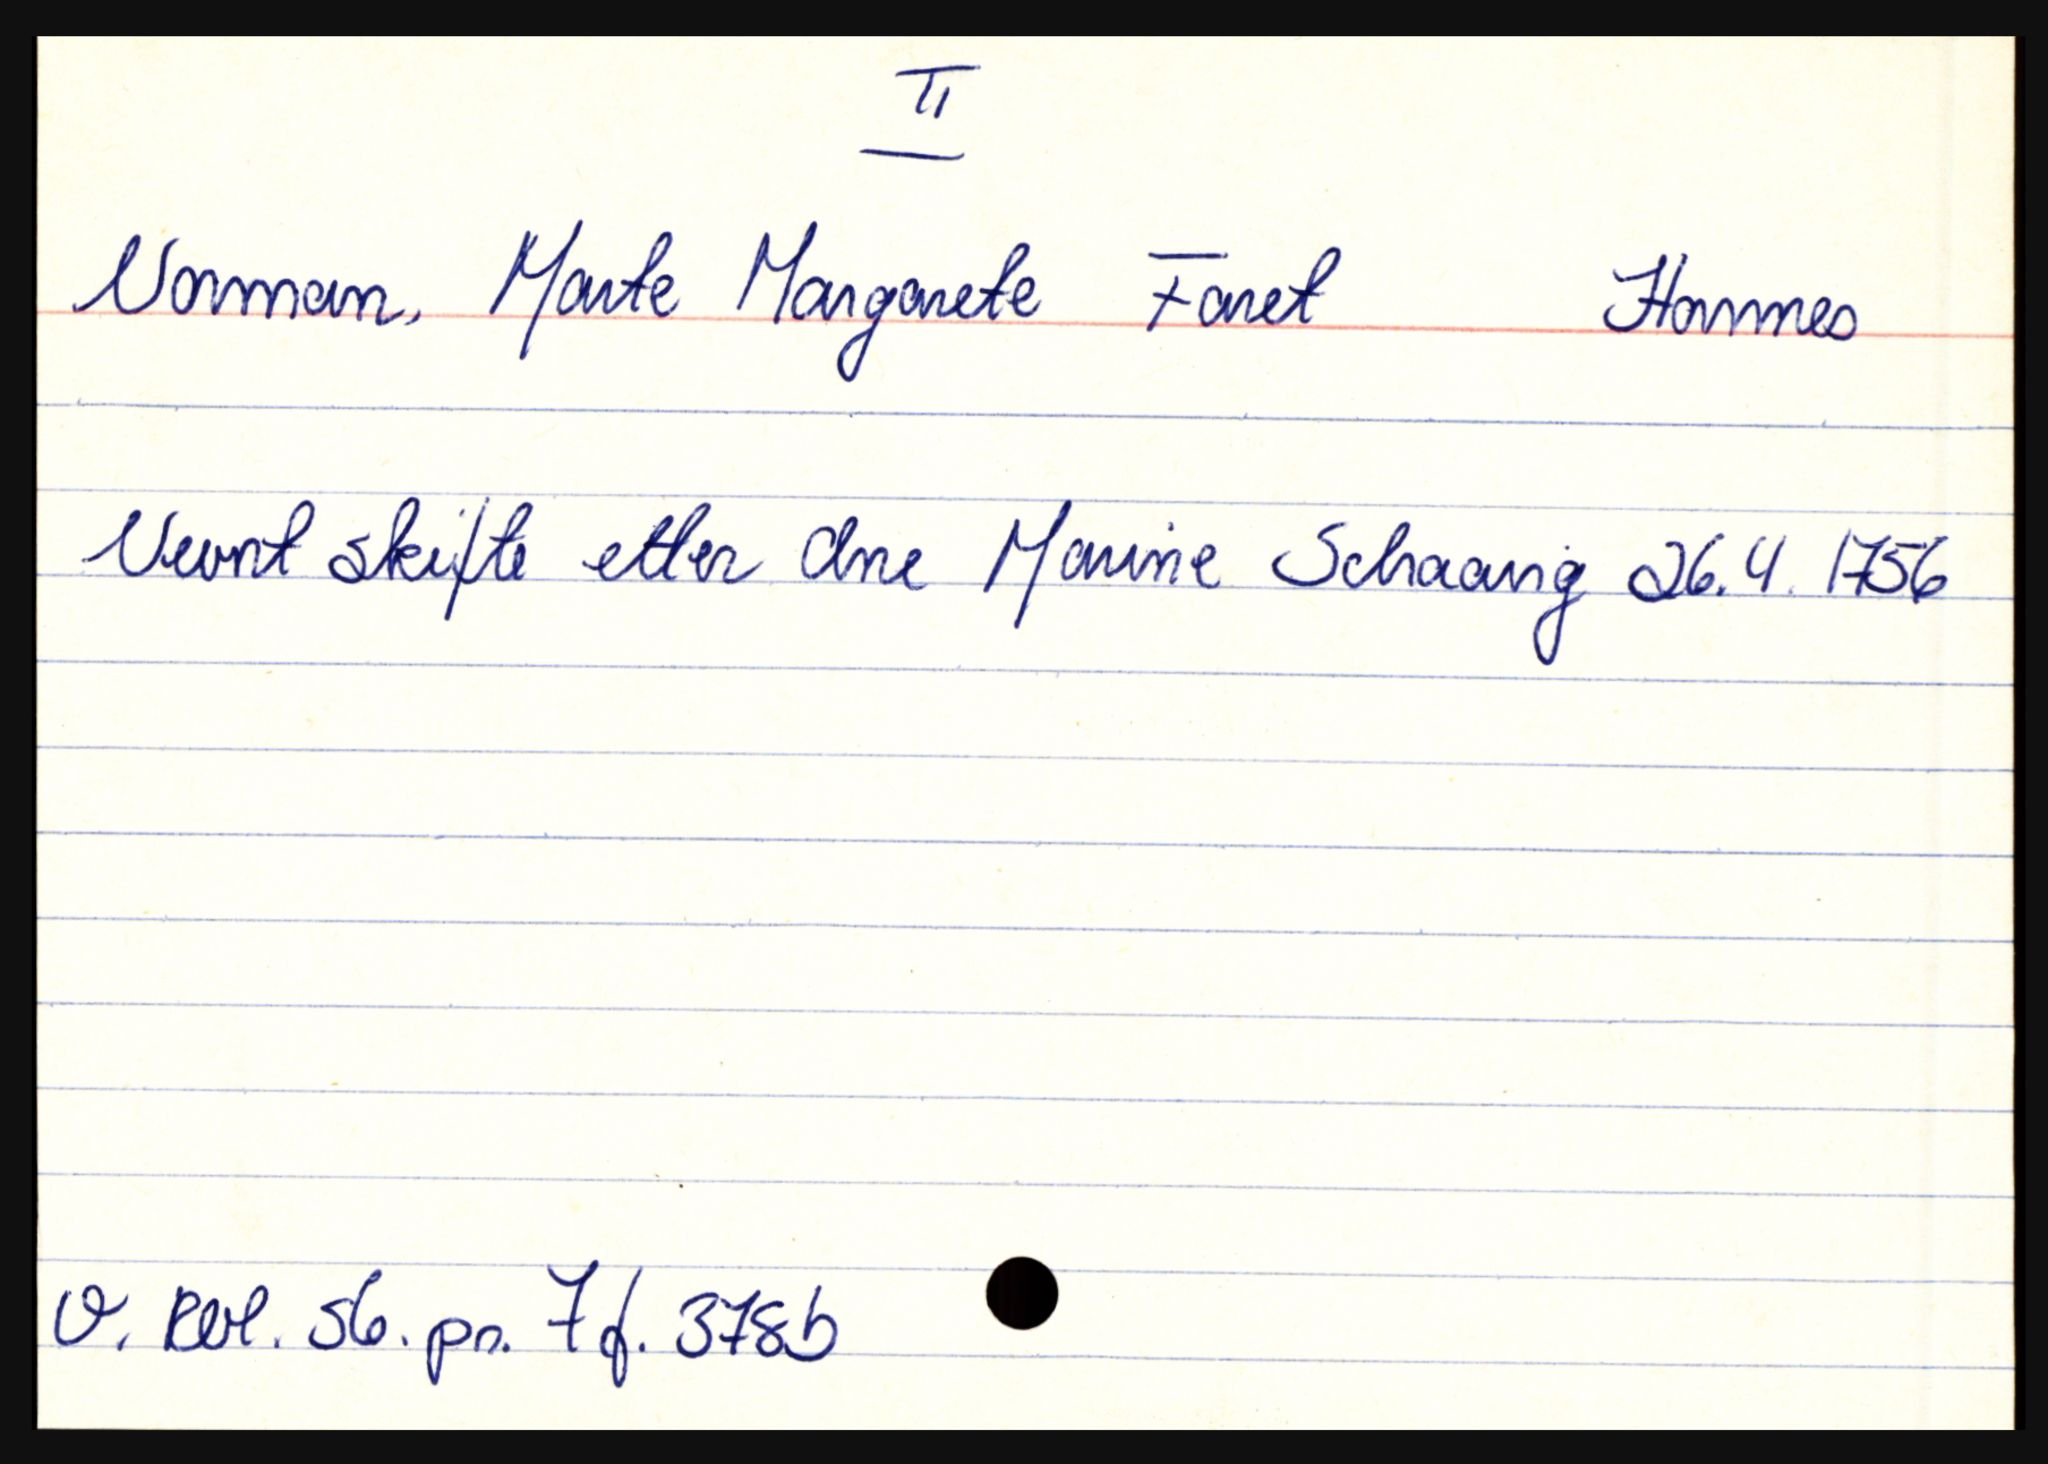 II
Norman, Marte Margarete Faret Hannes
Nevnt skifte etter dne Marine Schaanig 26.4. 1756
V. Rbl. sb. pr. 7 f. 378b